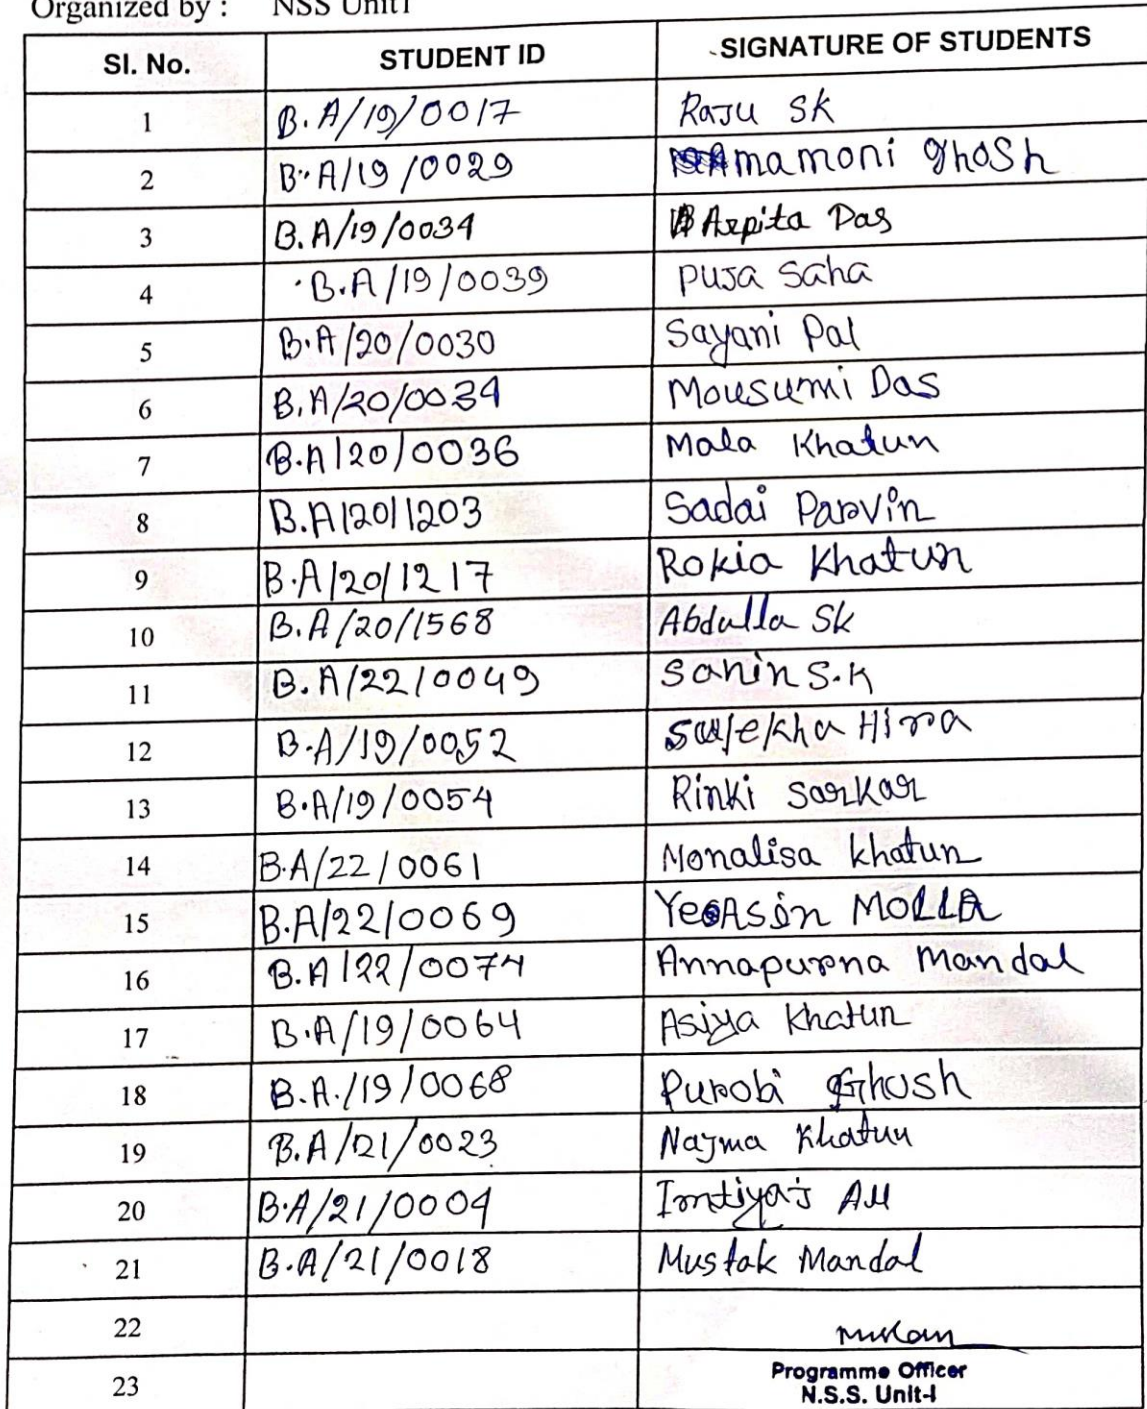 Organized by : NSS Unit1
Sl. No. STUDENT ID SIGNATURE OF STUDENTS
1 B.A/19/0017 Raju Sk
2 B.A/19/0029 mamoni ghosh
3 B.A/19/0034 Arpita Das
4 B.A/19/0039 Puja Saha
5 B.A/20/0030 Sayani Pal
6 B.A/20/0034 Mousumi Das
7 B.A/20/0036 Mala Khatun
8 B.A/20/1203 Sadai Parvin
9 B.A/20/1217 Rokia Khatun
10 B.A/20/1568 Abdulla Sk
11 B.A/22/0049 Sanin S.K
12 B.A/19/0052 Sulekha Hira
13 B.A/19/0054 Rinki Sarkar
14 B.A/22/0061 Monalisa Khatun
15 B.A/22/0069 YeAsin MOLLA
16 B.A/22/0074 Annapurna Mandal
17 B.A/19/0064 Asiya Khatun
18 B.A./19/0068 Purobi Ghosh
19 B.A/21/0023 Najma Khatun
20 B.A/21/0004 Imtiyaj Ali
21 B.A/21/0018 Mustak Mandal
22
Programme Officer
23 N.S.S. Unit-I